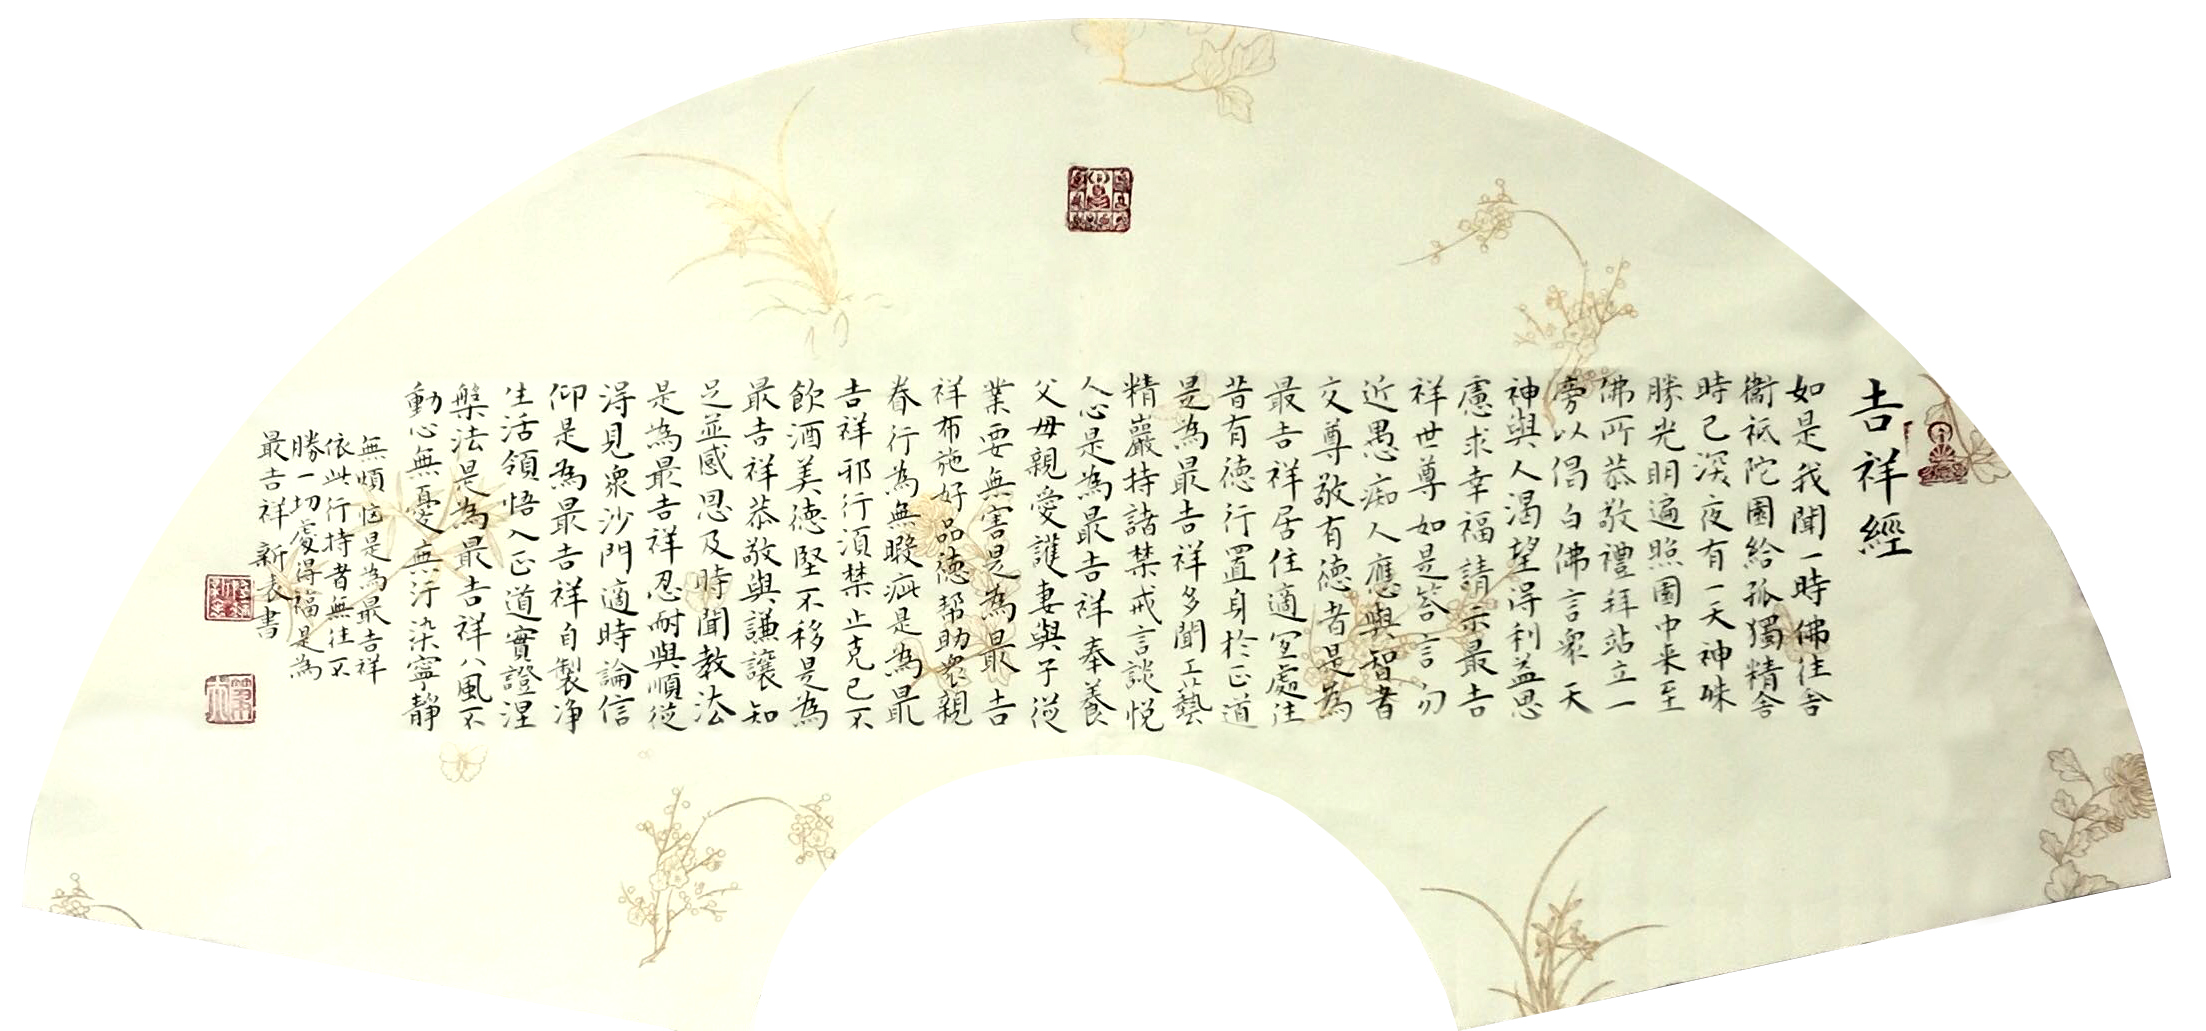 吉祥經
如是我聞一時佛住舍
衞衹陀園給孤獨精舍
時已深夜有一天神殊
勝光明遍照園中来至
佛所恭敬禮拜站立一
旁以倡白佛言眾天
神與人渴望得利益思
慮求幸福請示最吉
祥世尊如是答言勿
近愚痴人應與智者
交尊敬有德者是為
最吉祥居住適宜處往
昔有德行置身於正道
是為最吉祥多聞工藝
精嚴持諸禁戒言談悅
人心是為最吉祥奉養
父母親愛護妻與子從
業要無害是為最吉
祥布施好品德幫助眾親
眷行為無暇疵是為最
吉祥邪行須禁止克己不
飲酒美德堅不移是為
最吉祥恭敬與謙讓知
足並感恩及時聞教法
是為最吉祥忍耐與順從
得見眾沙門適時論信
仰是為最吉祥自製净
生活領悟入正道實證涅
槃法是為最吉祥八風不
動心無憂無汙染寧靜
無煩惱是為最吉祥
依此行持者無往不
勝一切處得福是為
最吉祥 新表書